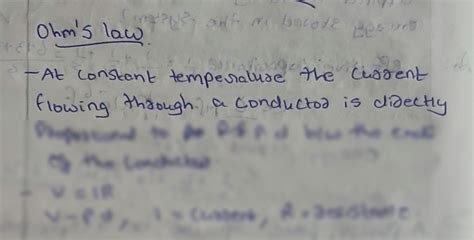 Ohm's law
- At constant temperature the current
flowing through a conductor is directly
proportional to
of the conductor
- V = IR
V - P.d, I = current, R = resistance